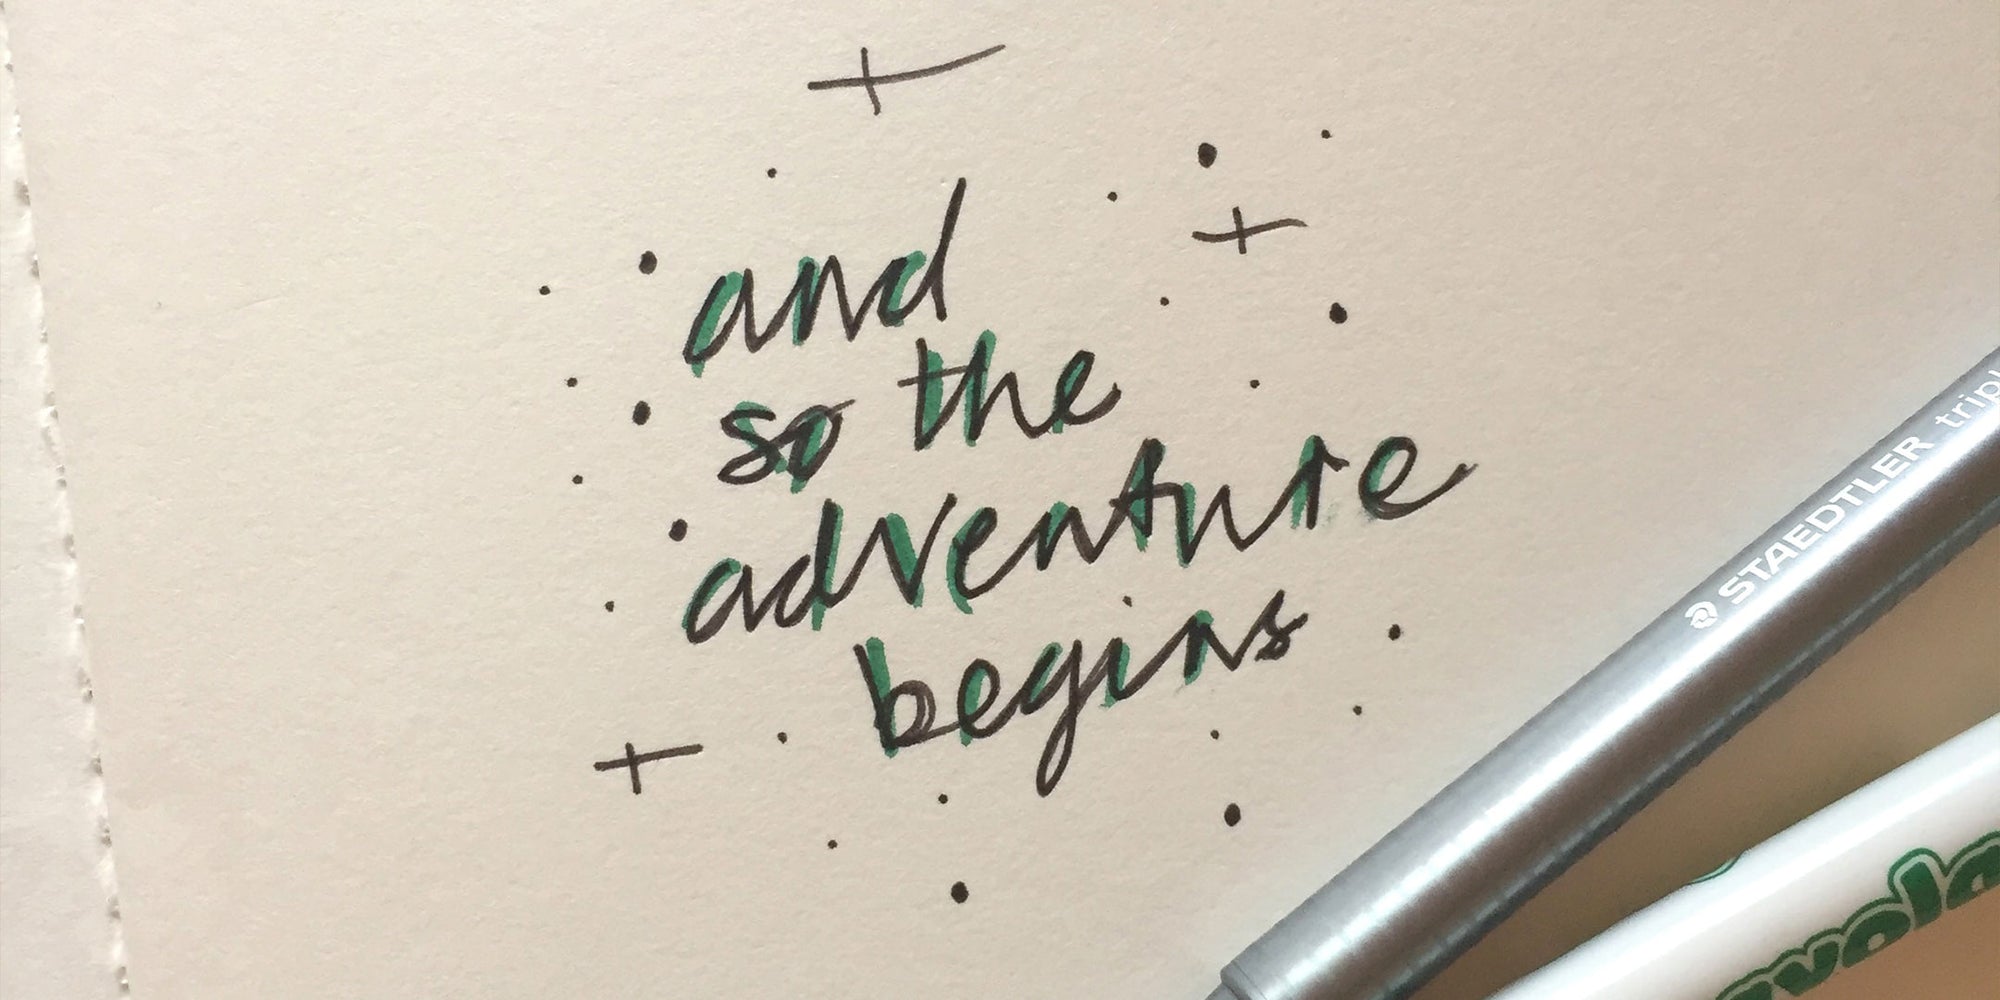 and
so the
adventure
begins
STAEDTLER tripl
ayola